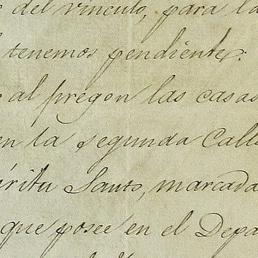 del vínculo, para la
tenemos pendiente.
al pregon las casas
en la segunda Call
íritu Santo, marcada
que posee en el Depa